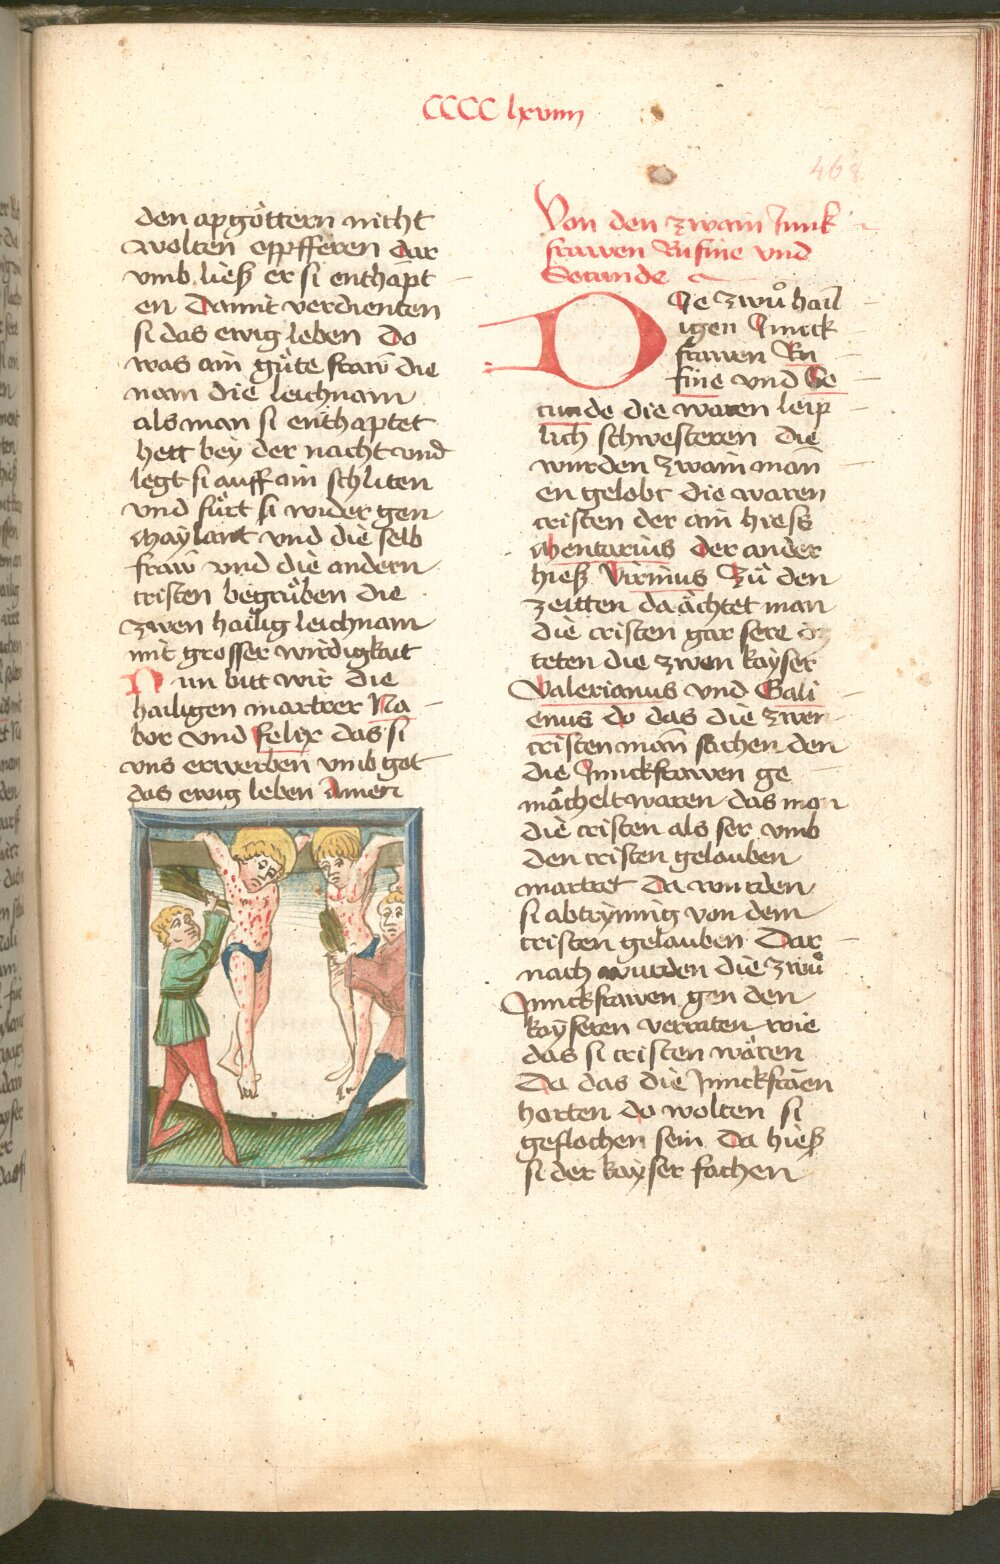 CCCC lxviiii
468
den apgöttern nicht
wolten oppfferen dar
vmb liesß er si enthapt
en Damit verdienten
si das ewig leben do
was ain gůte fraw die
nam die leichnam
als man si enthaptet
hett bey der nacht vnd
legt si auff ain schliten
vnd fůrt si wider gen
Maylant vnd die selb
fraw vnd die andern
cristen begrůben die
zwen hailig leichnam
mit grosser wirdigkait
Nun bitt wir die
hailigen martrer Na
bor vnd felix das si
vns erwerben vmb got
das ewig leben Amen
Von den zwain Junk
frawen Rufine vnd
Secunde
Die zwů hail
igen Junck
frawen Ru
fine vnd Se
cunde die waren leip
lich schwesteren die
wurden zwain man
en gelobt die waren
cristen der ain hiess
Mentarius der ander
hiesß Virinus Zů den
zeitten da ächtet man
die cristen gar sere dz
teten die zwen kayser
Valerianus vnd Gali
enus do das die zwen
cristen man sachen den
die Junckfrawen ge
mächelt waren das man
die cristen als ser vmb
den cristen gelauben
martret Da wurden
si abtrynnig von dem
cristen gelauben Dar
nach wurden die zwů
Junckfrawen gen den
kayseren verraten wie
das si cristen wären
Da das die Junckfraen
horten do wolten si
geflochen sein da hiesß
si der kayser fachen